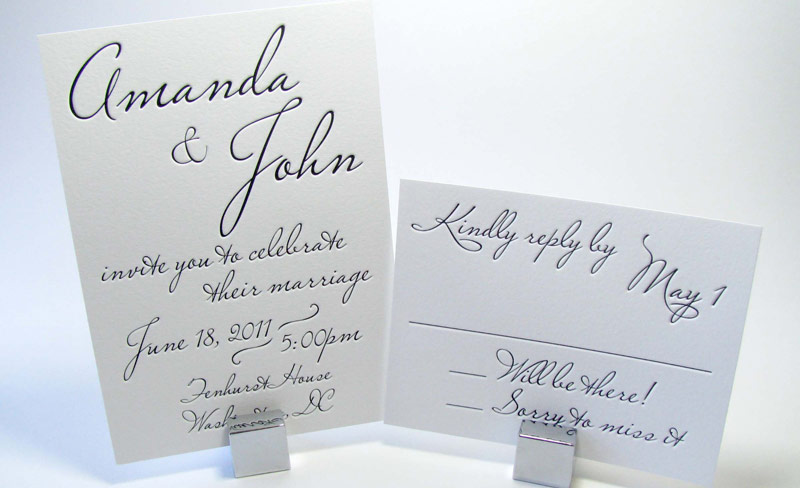 Amanda
& John
invite you to celebrate
their marriage
June 18, 2011
5:00pm
Fenhurst House
DC
Kindly reply by
May 1
Will be there!
Sorry to miss it